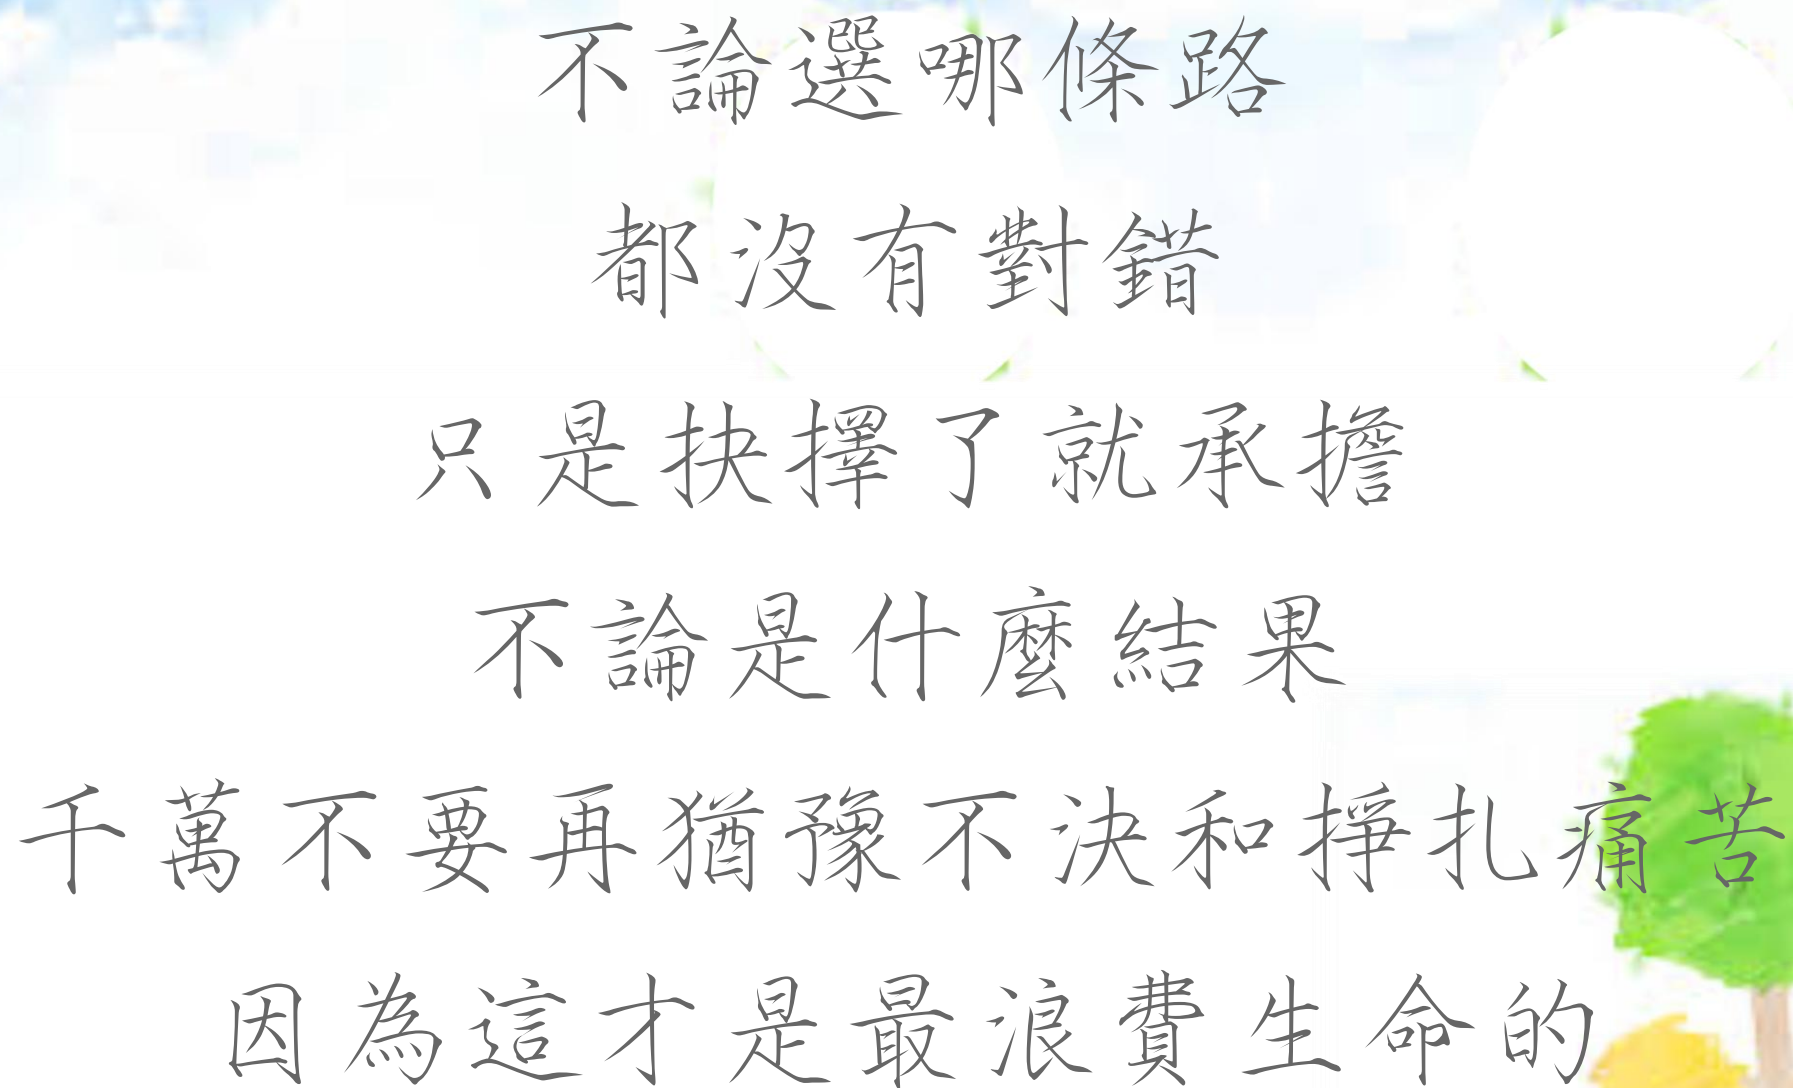 不論選哪條路
都沒有對錯
只是抉擇了就承擔
不論是什麼結果
千萬不要再猶豫不決和掙扎痛苦
因為這才是最浪費生命的